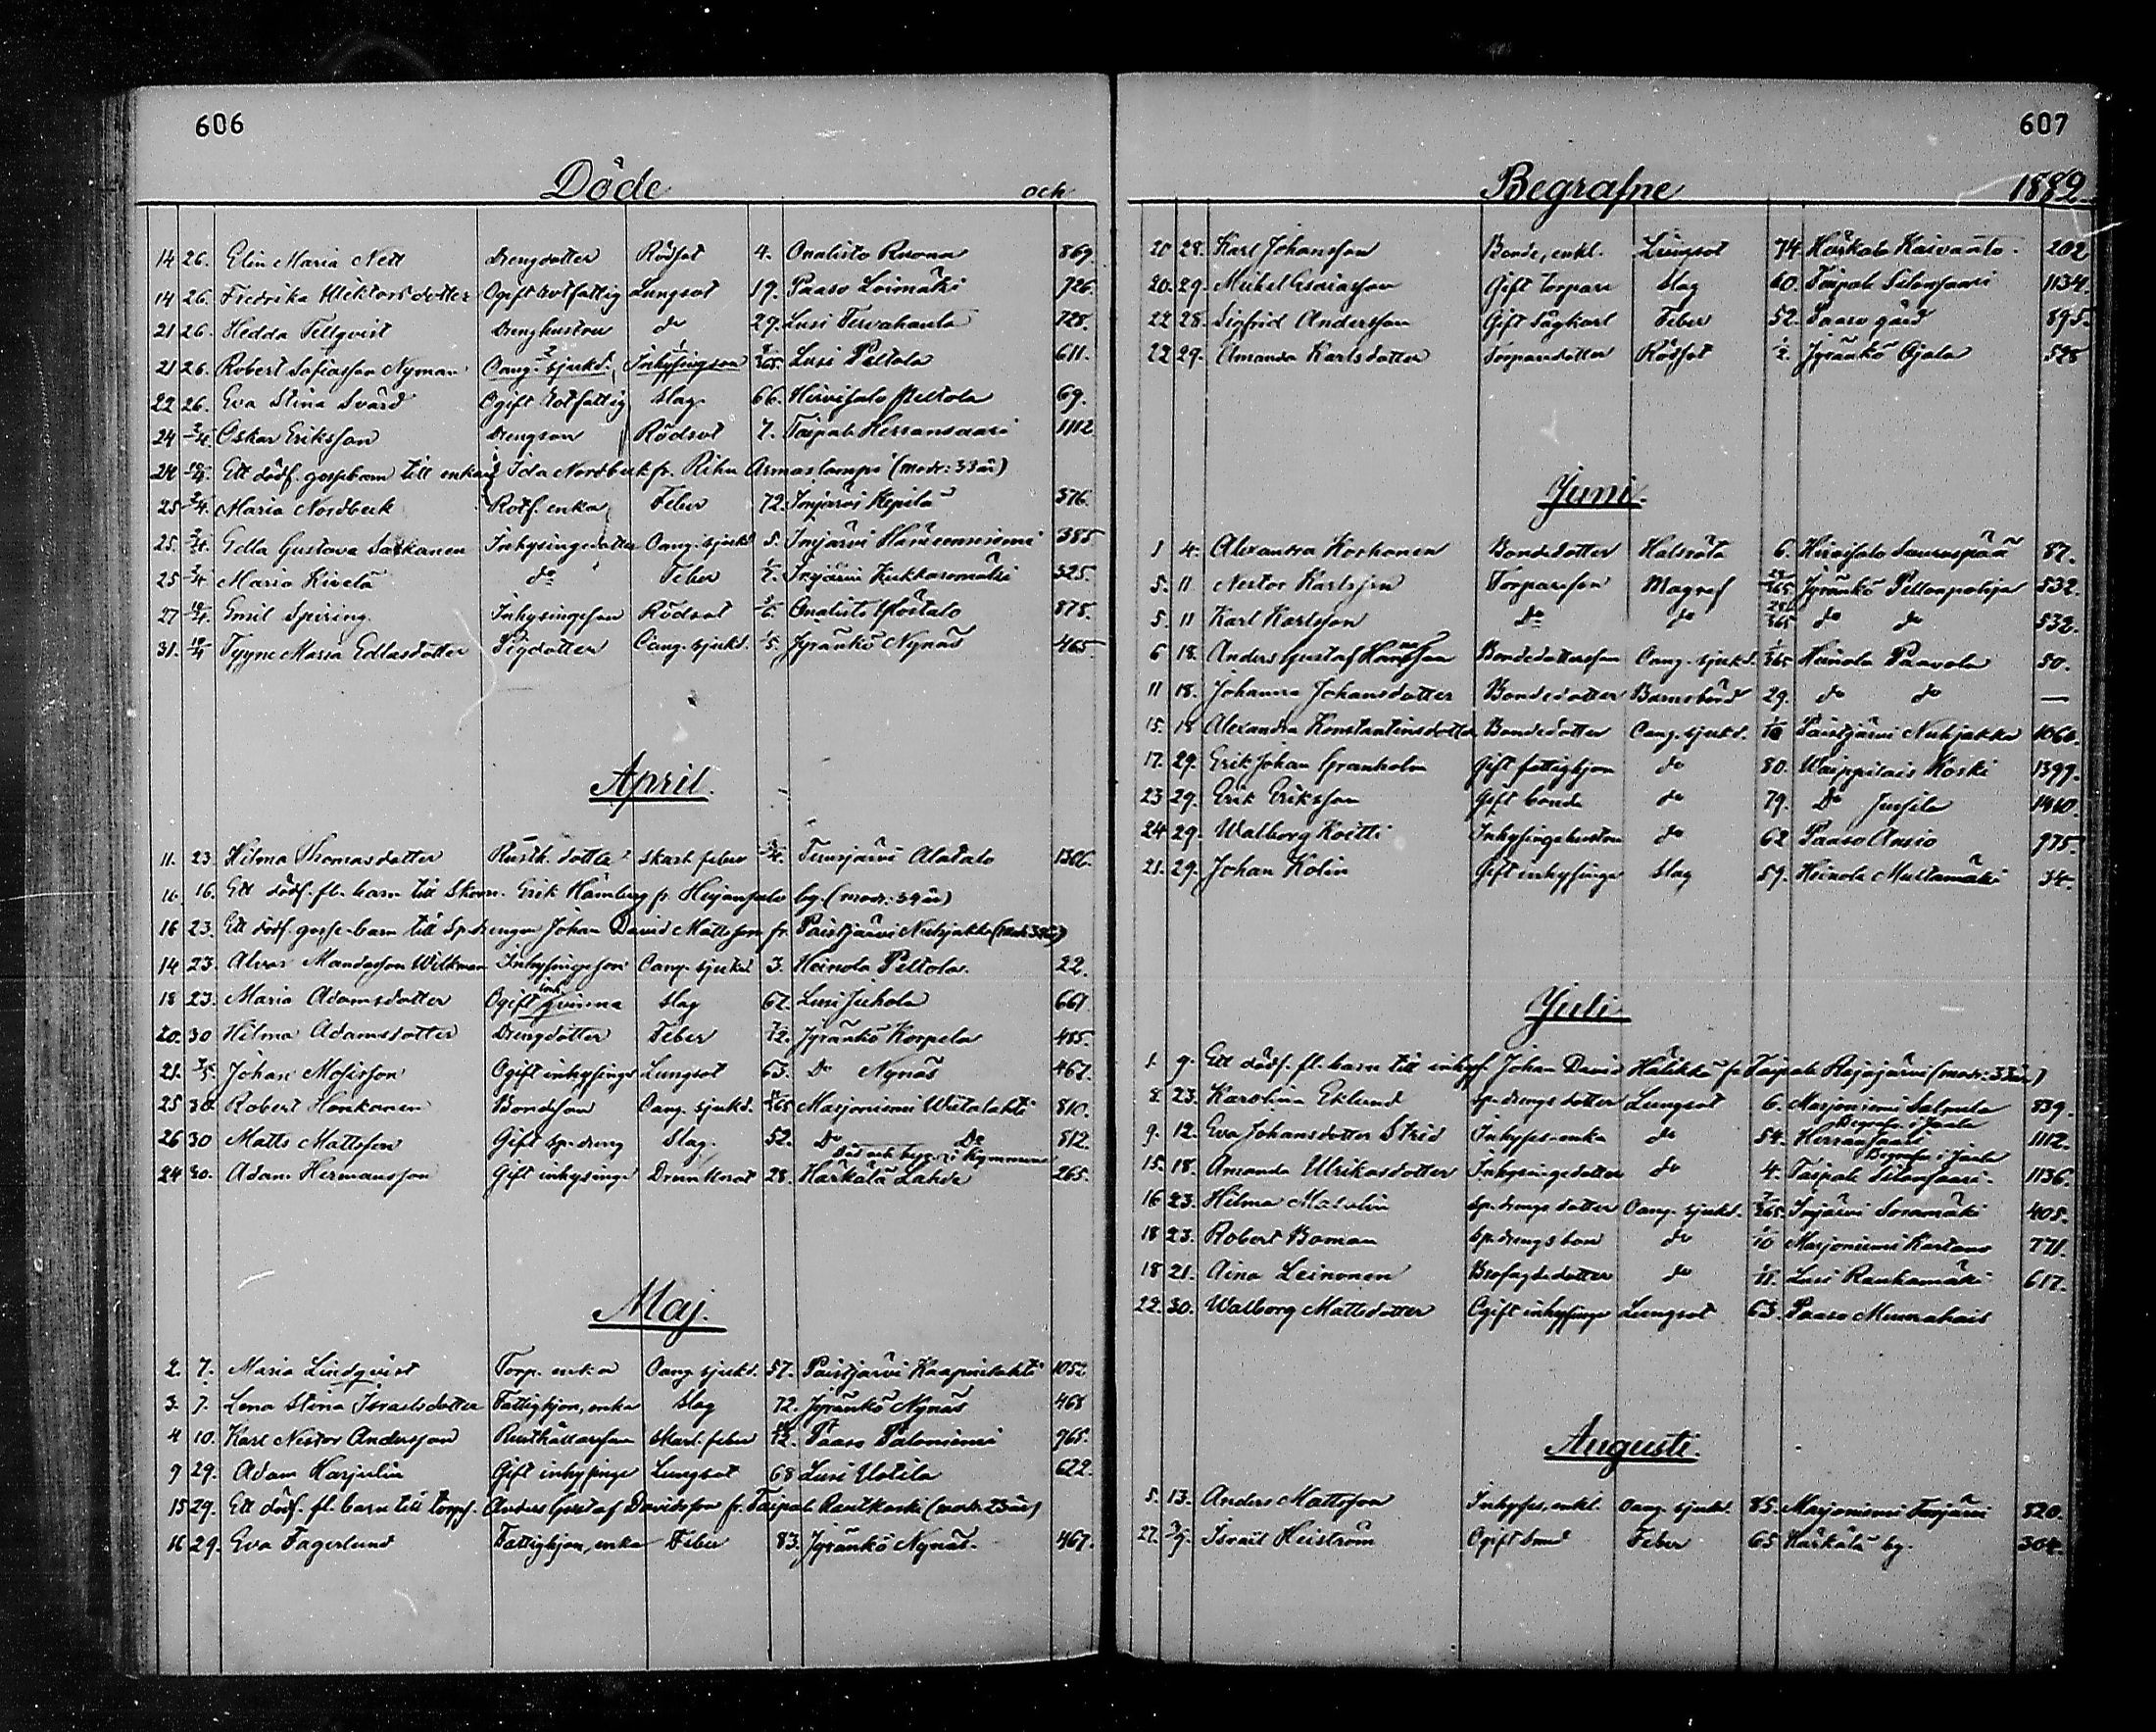 606
Döde och
14 26. Elin Maria Nett Drengdotter Rödsot 4. Onalisto Ruona 869.
14 26. Fredrika Wiktorsdotter Ogift Rotfattig Lungsot 19. Paaso Loimäki 926.
21 26. Hedda Tellqvist Drenghustru do 27. Lusi Tervahauta 728.
21 26. Robert Sofiasson Nyman Oang. sjukd. Inhysingson /365 Lusi Peltola 611.
22 26. Eva Stina Svärd Ogift Rotfattig Slag 66. Hirvisalo Peltola 69.
24 2/4 Oskar Eriksson Drengson Rödsot 7. Taipale Hersansaari 1112
24 Ett dödf. gossebarn till enkan Ida Nordbeck fr. Rihu Armaslampi (modr: 33 år)
25 2/4 Maria Nordbeck Rotf. enka Feber 72. Imjärvi Kepilä 376.
25. 2/4 Edla Gustava Saskanen Inhysingedotter Oang. sjukd 5. Imjärvi Hämeenniemi 385
25 2/4 Maria Kivelä do Feber Imjärvi Kukkaromäki 325.
27 Emil Spiring Inhysingeson Rödsot Onalisto Ylöstalo 878.
31. Tyyne Maria Edlasdotter Pigdotter Oang. sjukd. Jyränkö Nynäs 465
April.
11. 23. Hilma Thomasdotter Rusth. dotter Skarl. feber Tuusjärvi Alatalo 1306.
16. 16. Ett dödf. fl. barn till Skom. Erik Hämberg fr. Heijansalo by. (modr: 39 år)
16 23. Ett dödf. gosse-barn till Sp. drengen Johan David Mattsson fr. Paistjärvi Nuhjakka
14 23. Alvar Mandasson Wilkman Inhysingeson Oang. sjukd 3. Heinola Peltola. 22.
18 23. Maria Adamsdotter Ogift inh. qvinna Slag 67. Lusi Juhola 661
20. 30 Hilma Adamsdotter Drengdotter Feber /12. Jyränkö Korpela 485.
21. 7/5 Johan Mosisson Ogift inhysinge Lungsot 63. Do Nynäs 467.
25 30. Robert Honkanen Bondeson Oang. sjukd. /365 Marjoniemi Wiitalahti 810.
26 30 Matts Mattsson Gift Sp. dreng Slag. 52. Do Do 812.
Död och begr. i Kymmene
24 30. Adam Hermansson Gift inhysinge Drunknat 28. Härkälä Lahde 265.
Maj.
2. 7. Maria Lindqvist Torp. enka Oang. sjukd. 57. Paistjärvi Kaapinlahti 1052
3. 7. Lena Stina Israelsdotter Fattighjon, enka Slag 72. Jyränkö Nynäs 468
4 10. Karl Nestor Andersson Rusthållareson Skarl. feber /12. Paaso Paloniemi 965.
9 29. Adam Harjulin Gift inhysinge Lungsot 68 Lusi Uotila 622.
15 29. Ett dödf. fl. barn till torpf. Anders Gustaf Davidsson fr. Taipale Rautkoski (modr. 23 år)
16 29. Eva Fagerlund Fattighjon, enka Feber 83. Jyränkö Nynäs. 467.
607
Begrafne 1889.
20 28. Karl Johansson Bonde, enkl. Lungsot 74 Härkälä Kaivanto. 202
20. 29. Mickel Esaiasson Gift Torpare Slag 60. Taipale Silonsaari 1134.
22 28. Sigfrid Andersson Gift Sågkarl Feber 52. Paaso gård 895.
22 29. Amanda Karlsdotter Torparedotter Rödsot Jyränkö Ojala 528
Juni.
1 4. Alexandra Korhonen Bondedotter Halsröta 6. Hirvisalo Saunanpää 87.
5. 11 Nestor Karlsson Torpareson Magref /365 Jyränkö Pellonpohja 532.
5. 11 Karl Karlsson Do do /365 do do 532.
6 18. Anders Gustaf Bondedotterson Oang. sjukd. /365 Heinola Paavola 50.
11 18. Johanna Johansdotter Bondedotter Barnsbörd 29. do do —
15. 18 Alexandra Konstantinsdotter Bondedotter Oang. sjukd. Paistjärvi Nuhjakka 1060.
17. 29. Erik Johan Granholm Gift fattighjon do 80. Waippilais Koski 1399.
23 29. Erik Eriksson Gift bonde do 79. Do Jussila 1410.
24 29. Walborg Koitti Inhysingehustru do 62 Paaso Ansio 975.
21. 29. Johan Kolin Gift inhysinge Slag 59. Heinola Multamäki 34.
Juli
1. 9. Ett dödf. fl. barn till inhys. Johan David Hälikkö fr Taipale Rajajärvi (modr: 33 år)
2. 23. Karolina Eklund Sp. drengs dotter Lungsot 6. Marjoniemi Salmela 839.
Begrafn i Jaala
9. 12. Eva Johansdotter Strid Inhyses-enka do 54. Hersansaari 1112.
Begrafn i Jaala
15. 18. Amanda Ulrikasdotter Inhysingedotter do 4. Taipale Silonsaari. 1136.
16 23. Hilma Sp. drengs dotter Oang. sjukd. /365. Imjärvi Soramäki 405.
18 23. Robert Boman Sp. drengs son do /10 Marjoniemi Kartano 771.
18 21. Aina Leinonen Brofogdedotter do Lusi Rauhamäki 617.
22. 30. Walborg Mattsdotter Ogift inhysinge Lungsot 63. Paaso
Augusti.
5. 13. Anders Mattsson Inhyses, enkl. Oang. sjukd. 85. Marjoniemi Imjärvi 820.
27. /9. Israel Heiström Ogift Smed Feber 65 Härkälä by. 304.